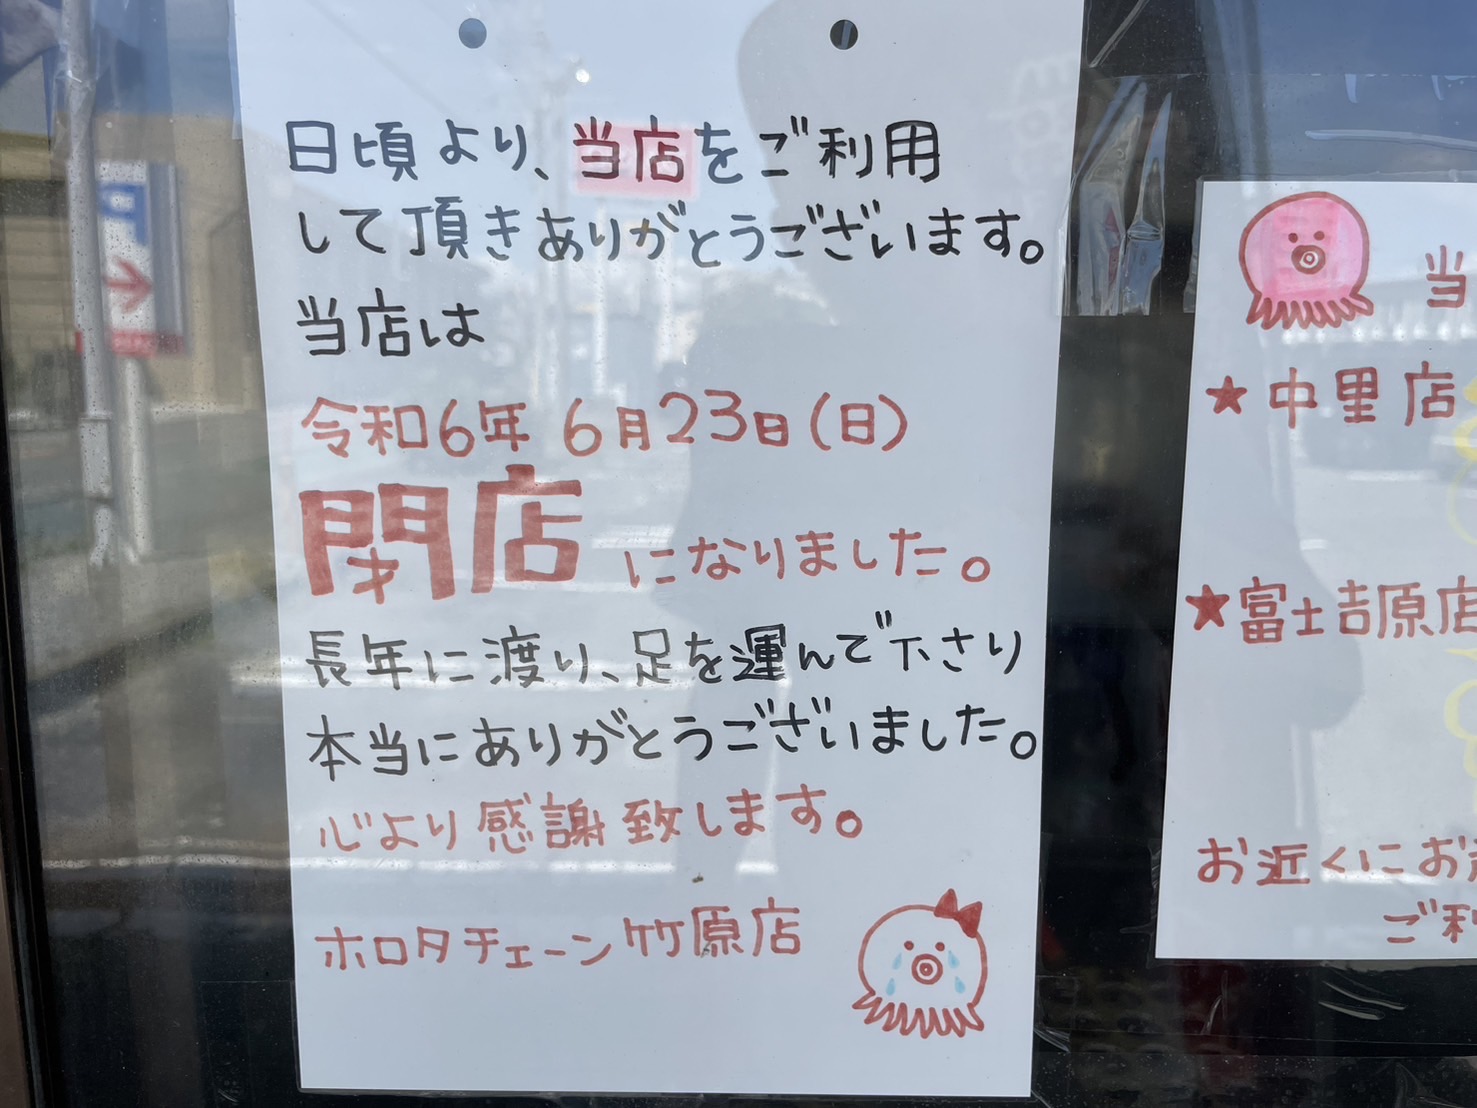 日頃より、当店をご利用
して頂きありがとうございます。
当店は
令和6年 6月23日(日)
閉店になりました。
長年に渡り、足を運んで下さり
本当にありがとうございました。
心より感謝致します。
ホロタチェーン竹原店
当
★中里店
★富士吉原店
お近くにお
ご利